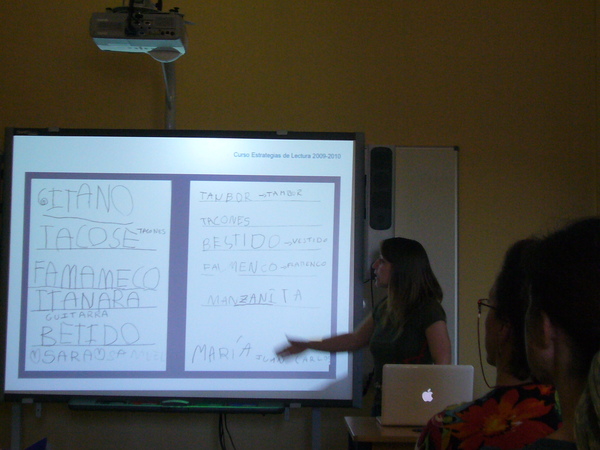 Curso Estrategias de Lectura 2009-2010
GITANO
TACOSE TACONES
FAMAMECO
ITANARA
GUITARRA
BETIDO
SARA
TANBOR → TAMBOR
TACONES
BESTIDO → VESTIDO
FALMENCO → FLAMENCO
MANZANITA
MARÍA